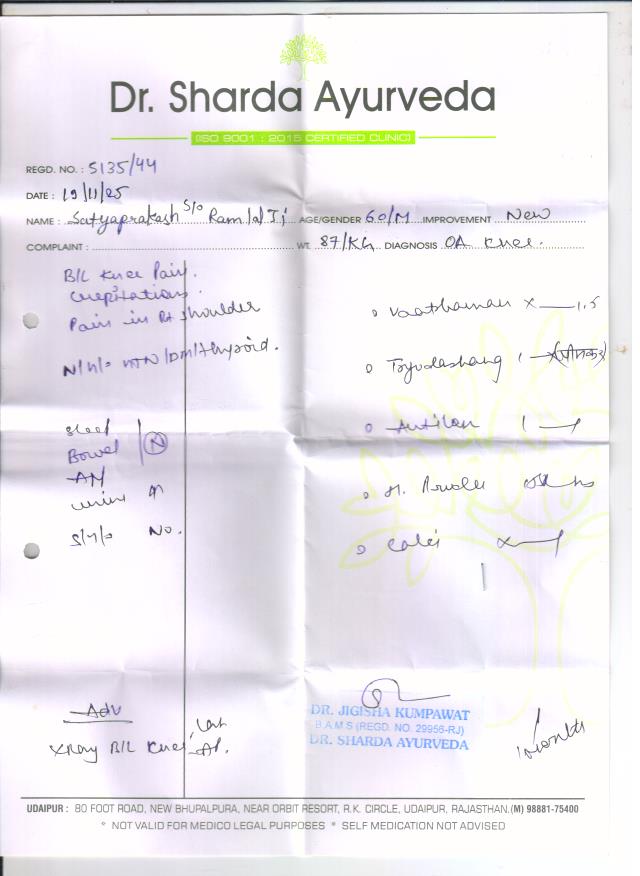 Dr. Sharda Ayurveda
(ISO 9001 : 2015 CERTIFIED CLINIC)
REGD. NO. : 5135/44
DATE : 19/11/25
NAME : Satyaprakash S/o Ram AGE/GENDER 60/M IMPROVEMENT New
COMPLAINT : WT. 87/KG DIAGNOSIS OA Knee.
B/L Knee Pain.
Crepitations.
Pain in Rt shoulder
N/H/o HTN/DM/thyroid.
Sleep
Bowel N
urine
S/H/o No.
Vaathaman x 1.5
Tryodashang 1
1
Calci x
Adv
Xray B/L Knee, Lat
AP.
DR. JIGISHA KUMPAWAT
B.A.M.S (REGD. NO. 29956-RJ)
DR. SHARDA AYURVEDA
1 Month
UDAIPUR : 80 FOOT ROAD, NEW BHUPALPURA, NEAR ORBIT RESORT, R.K. CIRCLE, UDAIPUR, RAJASTHAN.(M) 98881-75400
* NOT VALID FOR MEDICO LEGAL PURPOSES * SELF MEDICATION NOT ADVISED